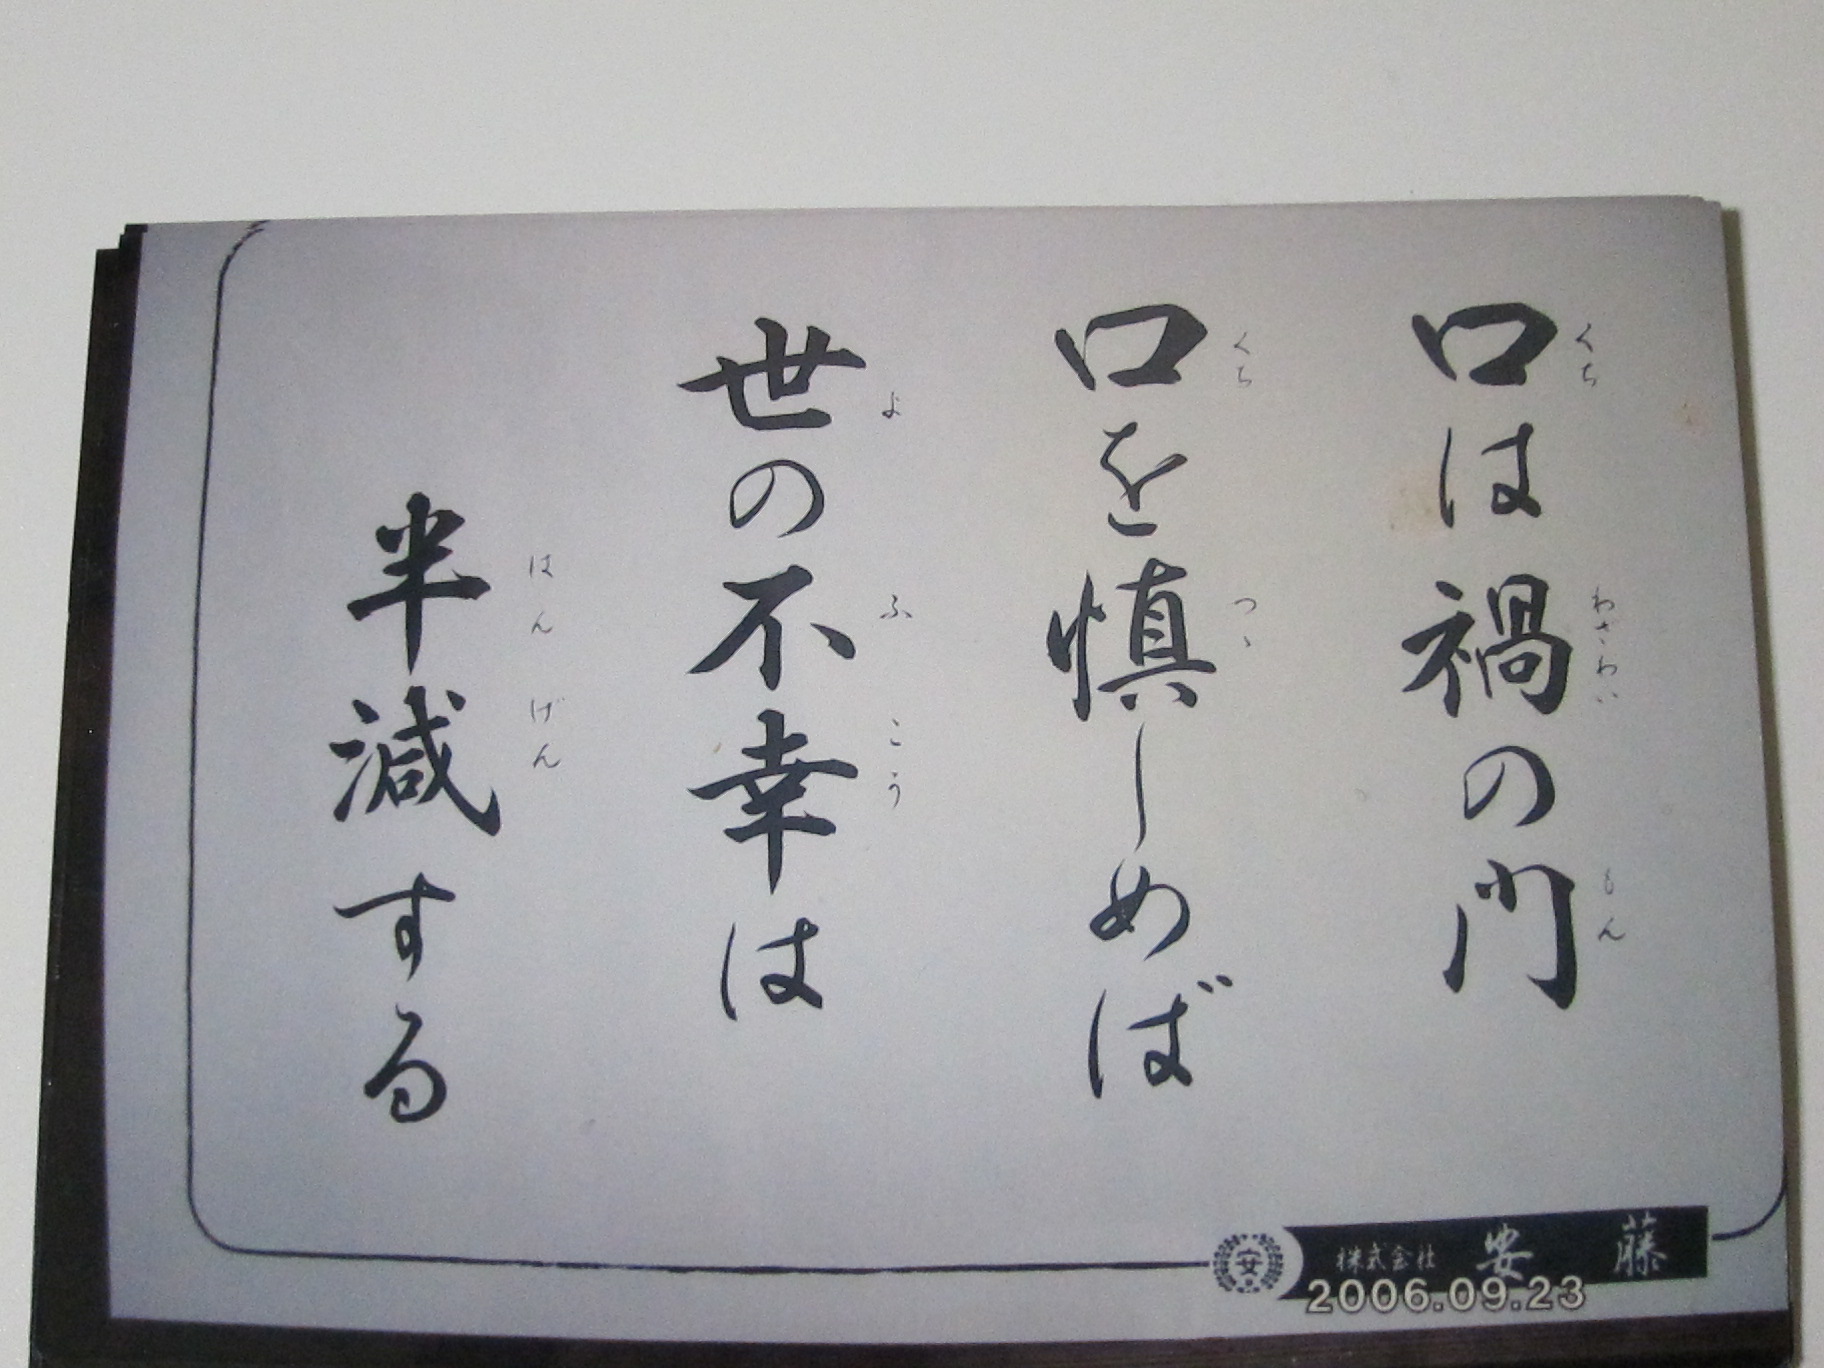 口は禍の門
くち わざわい もん
口を慎しめば
くち つゝ
世の不幸は
よ ふ こう
半減する
はん げん
安
株式会社 安藤
2006.09.23